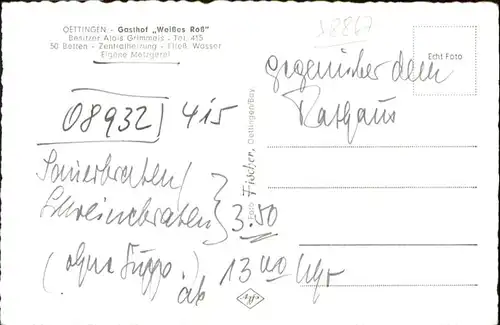 OETTINGEN - Gasthof „Weißes Roß"
Besitzer Alois Grimmeis - Tel. 415
50 Betten - Zentralheizung - Fließ. Wasser
Eigene Metzgerei
08932/ 415
Sauerbraten
Schweinebraten } 3.50
(ohne Suppe)
ab 13 00 Uhr
Foto Fischer, Oettingen/Bay
Agfa
J 8867
Echt Foto
gegenüber dem
Rathaus